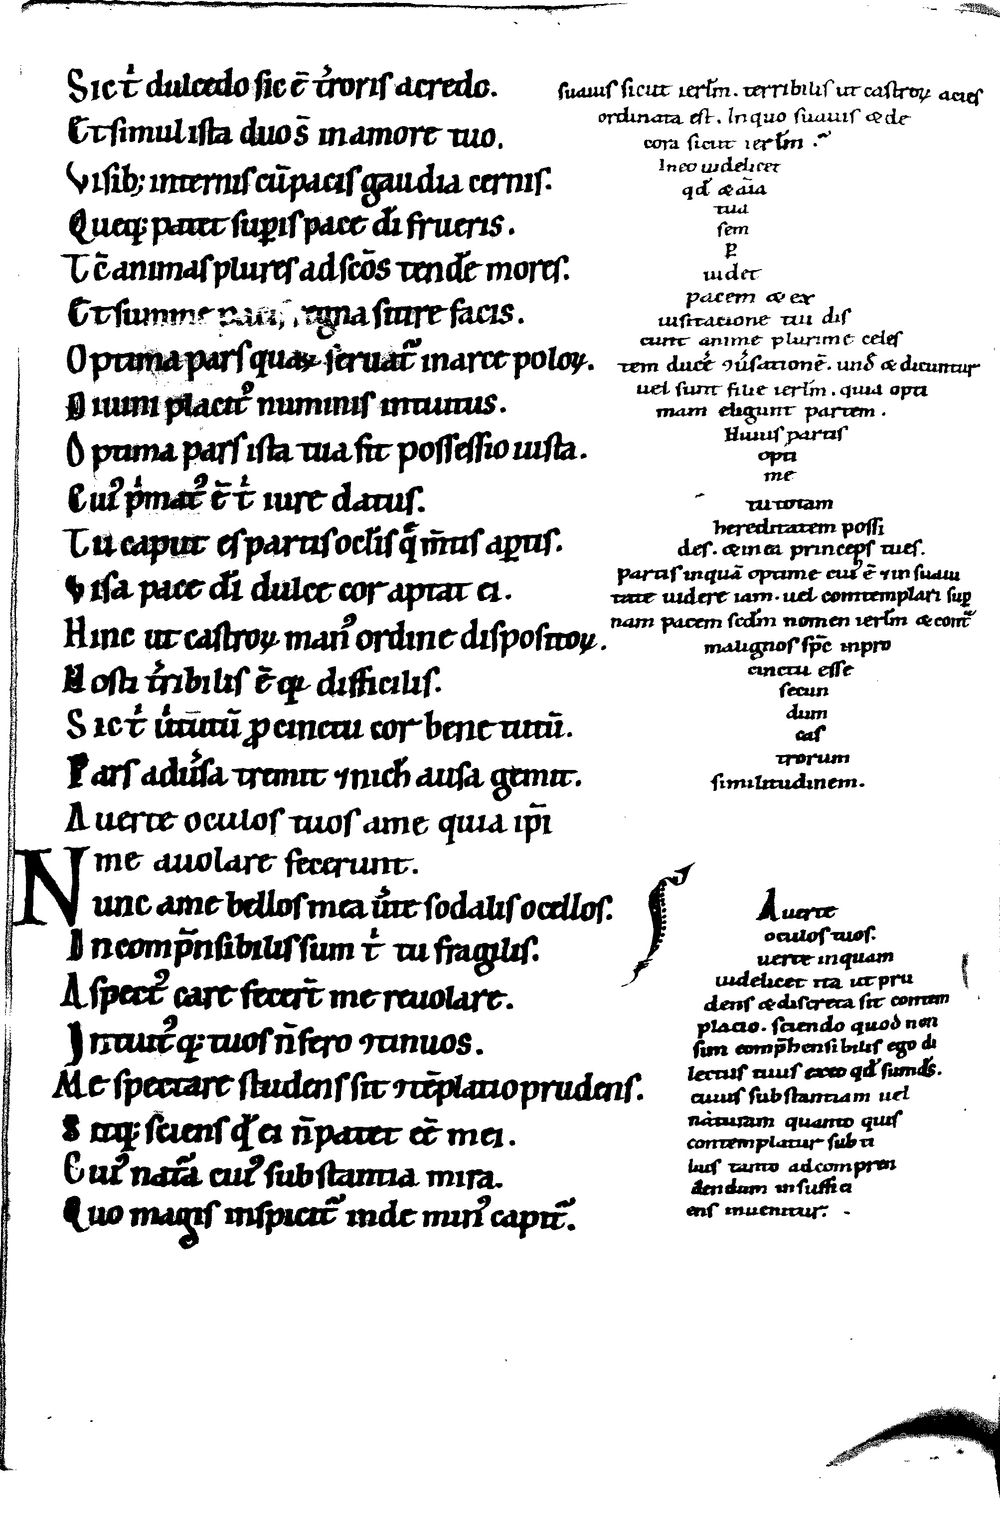 Sic t᷑ dulcedo sic ē t᷑roris acredo.
Et simul ista duo s̄ in amore tuo.
Visib; internis cū pacis gaudia cernis.
Queq; patet suꝑis pace di̅ frueris.
Tc̄ animas plures ad scōs tend̄e mores.
Et summe pacis regna sitire facis.
Optima pars quaꝝ seruat᷑ in arce poloꝝ.
Diuini placitꝰ numinis intuitus.
Optima pars ista tua fit possessio iusta.
Cuiꝰ pͥmatꝰ ē tͥ iure datus.
Tu caput es partis oclis qͥ m̄tis aꝑtis.
Visa pace di̅ dulce cor aptat ei.
Hinc ut castroꝝ manꝰ ordine dispositoꝝ.
Hosti t᷑ribilis ē qꝫ difficilis.
Sic t᷑ ꝓcinctu cor bene tutū.
Pars adu᷑sa tremit ⁊ nich̄ ausa gemit.
Auerte oculos tuos a me quia ip̄i
me auolare fecerunt.
Nunc a me bellos mea u᷑te sodalis ocellos.
Incomp̄nsibilis sum tͥ tu fragilis.
Aspectꝰ care fecer̄t me reuolare.
Intuitꝰ qꝫ tuos n̄ fero ꝯtinuos.
Me spectare studens sit ꝯtēplatio prudens.
Sitqꝫ sciens qd̄ ei n̄ patet eē mei.
Cuiꝰ nat᷑a cuiꝰ substantia mira.
Quo magis inspicit᷑ inde minꝰ capit᷑.
suauis sicut ierl̄m. terribilis ut castroꝝ acies
ordinata est. In quo suauis & de
cora sicut ierl̄m.
In eo uidelicet
qd̄ & aīa
tua
sem
ꝑ
uidet
pacem & ex
uisitatione tui dis
cunt anime plurime celes
tem duce᷑ ꝯu᷑sationē. und̄ & dicuntur
uel sunt filie ierl̄m. quia opti
mam eligunt partem.
Huius partis
opti
me
tu totam
hereditatem possi
des. & in ea princeps tu es.
Partis inquā optime cuiꝰ ē ⁊ in suaui
tate uidere iam. uel comtemplari suꝑ
nam pacem scd̄m nomen ierl̄m & cont᷑
malignos sp̄c in pro
cinctu esse
secun
dum
cas
trorum
similitudinem.
Auerte
oculos tuos.
uerte inquam
uidelicet ita ut pru
dens & discreta sit contem
platio. sciendo quod non
sim comp̄hensibilis ego di
lectus tuus exeo qd̄ sum ds̄.
cuius substantiam uel
naturam quanto quis
contemplatur subti
lius tanto ad compren
dendam insuffici
ens inuenitur.